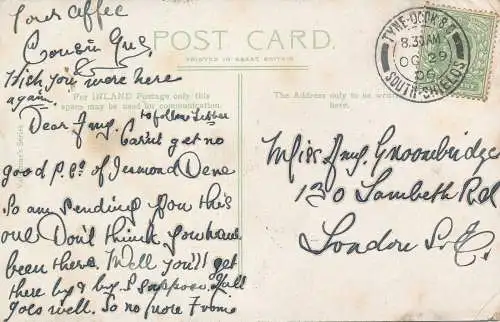 Yours affec
Cousin Gus.
Wish you were here
again.
POST CARD.
PRINTED IN GREAT BRITAIN
For INLAND Postage only this
space may be used for communication.
The Address only to be
here.
TYNE-DOCK B.O.
8.30AM
OC 29
06
SOUTH-SHIELDS
to follow Letter
Dear Amy. Can't get no
good p.cs of Jesmond Dene
So am sending you this
one Don't think you have
been there. Well you'll get
there by & by. I suppose. If all
goes well. So no more From
Miss Amy Groombridge
130 Lambeth Rd
London S.E.
Series